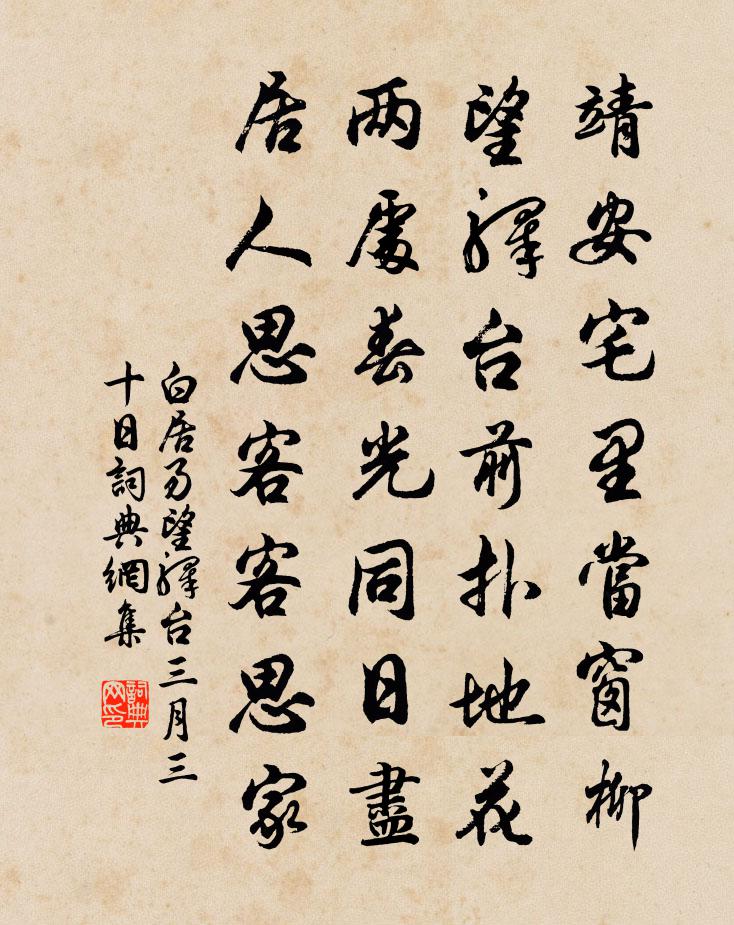 靖安宅里當窗柳
望驛台前扑地花
两處春光同日盡
居人思客客思家
白居易望驛台三月三
十日詞典網集
詞典
网印